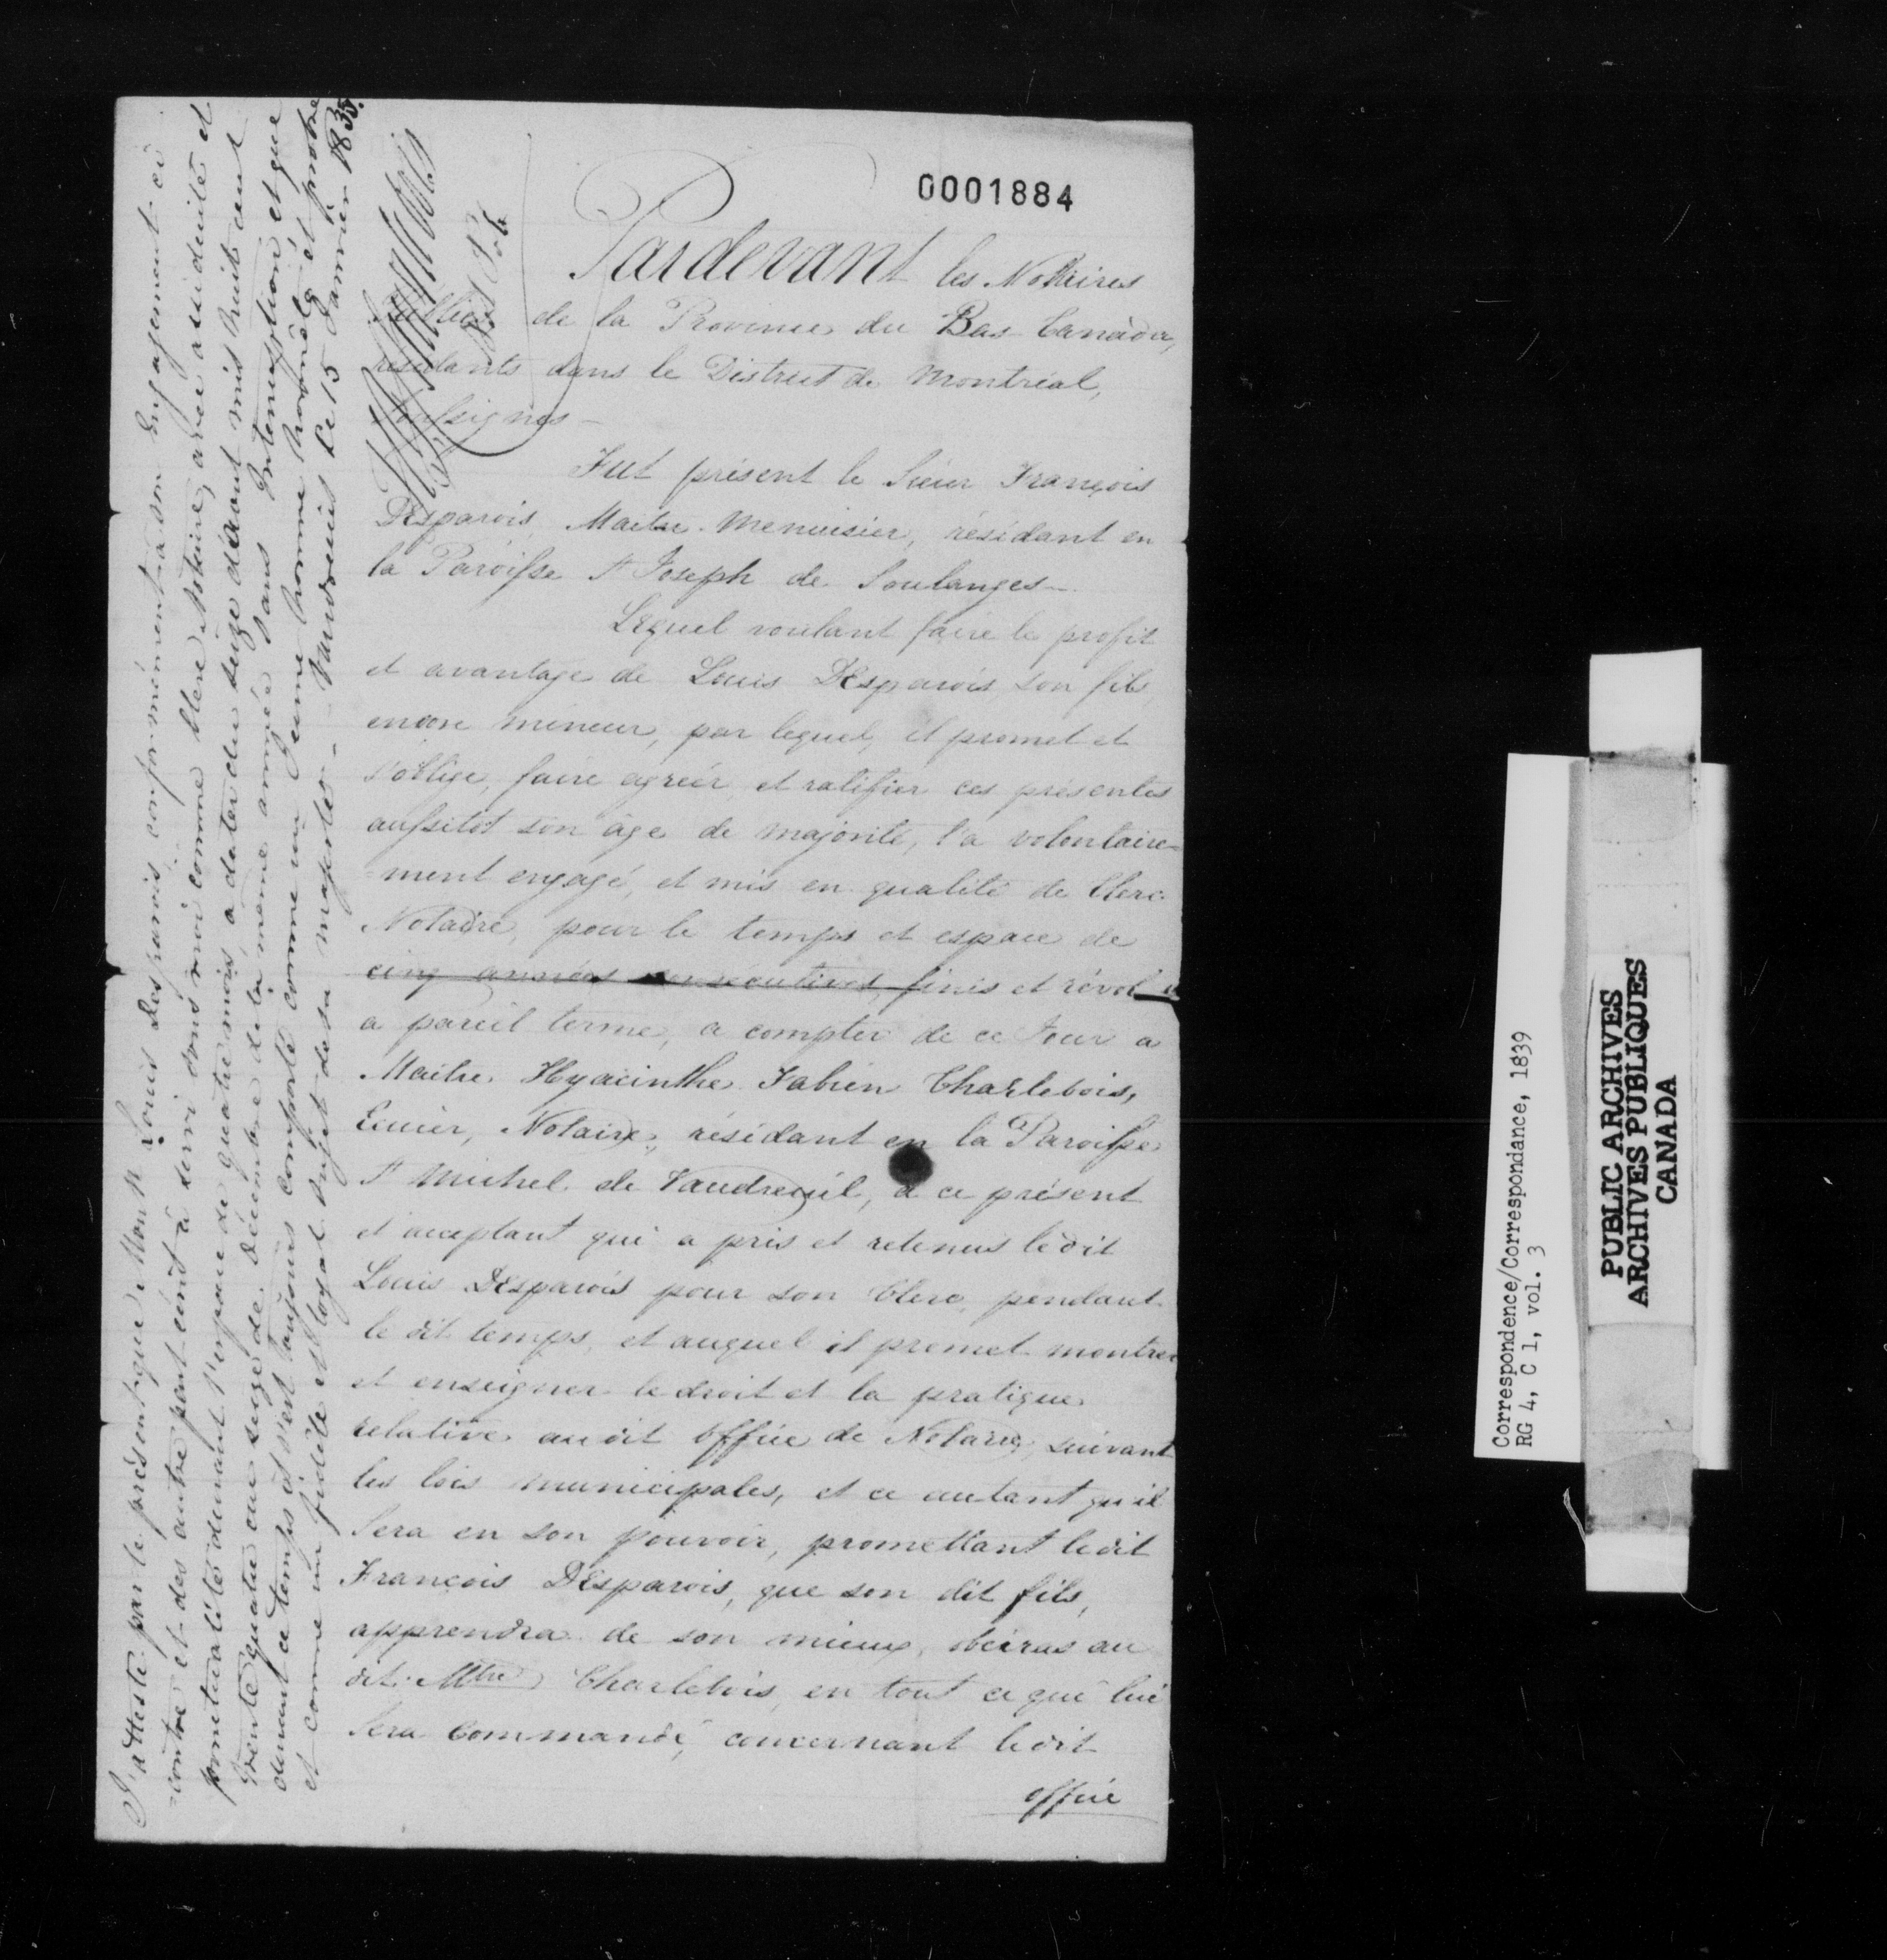 0001884
Pardevant les Notaires
Publics de la Province du Bas Canada,
résidants dans le District de Montréal,
Soussignés -
Fut présent le Sieur François
DEsparois, Maitre Menuisier, résidant en
la Paroisse St Joseph de Soulanges -
Lequel voulant faire le profit
et avantage de Louis DEsparois, son fils
encore mineur, par lequel, il promet et
s'oblige, faire agréér, et ratifier ces présentes
aussitôt son âge de majorité, l'a volontaire=
=ment engagé, et mis en qualité de Clerc
Notaire, pour le temps et espace de
cinq années consécutives, finis et révol
a pareil terme, a compter de ce Jour a
Maitre Hyacinthe Fabien Charlebois,
Ecuier, Notaire, résidant en la Paroisse
St Michel de Vaudreuil, a ce présent
et acceptant qui a pris et retenus ledit
Louis DEsparois pour son Clerc, pendant
le dit temps, et auquel il promet montrer
et enseigner le droit et la pratique
relative audit office de Notaire, suivant
les lois municipales, et ce autant qu'il
Sera en son pouvoir, promettant ledit
François DEsparois, que son dit fils,
apprendra de son mieux, obéiras au
dit Mtre Charlebois, en tout ce qui lui
Sera Commandé, concernant ledit
office
J'atteste par le présent que Monsr Louis Desparois, conformément à son Engagement ci
contre et des autre part, a servi sous moi comme Clerc Notaire, avec assiduité et
ponctualité durant l'espace de quatre mois a dater du seize d'Aout mis huit cent
trente quatre au seize de Décembre de la même année sans Interruption et que
durant ce temps il s'est toujours comporté comme un Jeune homme honnête et probre
et comme un fidèle et loyal sujet de sa majesté - Vaudreuil Le 15 Janvier 1835.
Correspondence/Correspondance, 1839
RG 4, C 1, vol. 3
PUBLIC ARCHIVES
ARCHIVES PUBLIQUES
CANADA